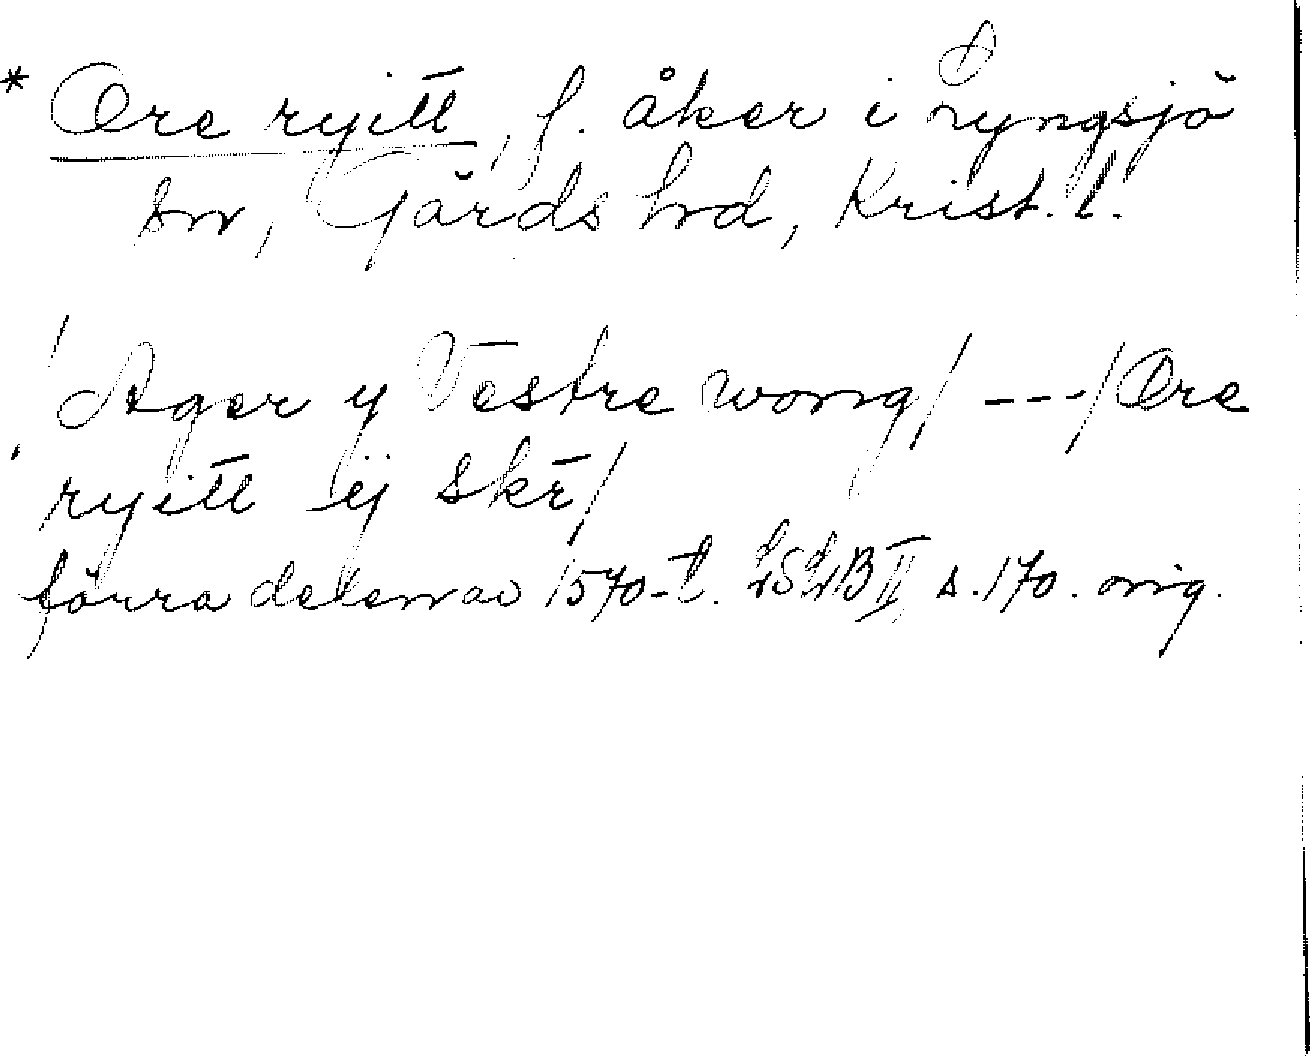 * Ore ryitt, f. åker i Lyngsjö
sn, Gärds hrd, Krist. l.
/Ager y Vestre wong/ ---/Ore
ryitt ij skr/
förra delen av 1570-t. LSLB II s. 170. orig.